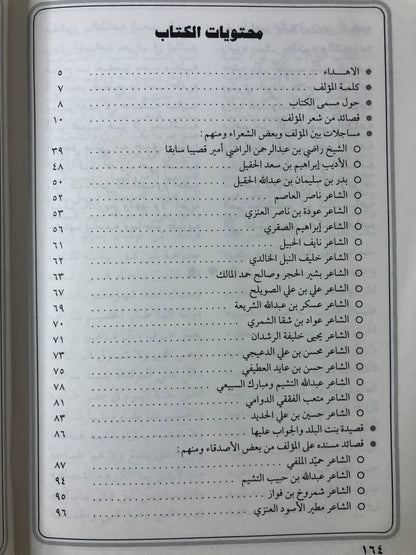 محتويات الكتاب
* الاهداء ........ ٥
* كلمة المؤلف ........ ٧
* حول مسمى الكتاب ........ ٨
* قصائد من شعر المؤلف ........ ١٠
* مساجلات بين المؤلف وبعض الشعراء ومنهم:
○ الشيخ راضي بن عبدالرحمن الراضي أمير قصيبا سابقا ........ ٣٩
○ الأديب إبراهيم بن سعد الحقيل ........ ٤٨
○ بدر بن سليمان بن عبدالله الحقيل ........ ٥٠
○ الشاعر ناصر العاصم ........ ٥٢
○ الشاعر عودة بن ناصر العنزي ........ ٥٣
○ الشاعر إبراهيم الصقري ........ ٥٦
○ الشاعر نايف الحبيل ........ ٦١
○ الشاعر خليف النبل الخالدي ........ ٦٢
○ الشاعر بشير الحجر وصالح حمد المالك ........ ٦٣
○ الشاعر علي بن علي الصويلح ........ ٦٧
○ الشاعر عسكر بن عبدالله الشريعة ........ ٦٩
○ الشاعر عواد بن شقا الشمري ........ ٧٠
○ الشاعر يحيى خليفة الرشدان ........ ٧١
○ الشاعر محسن بن علي الدعيجي ........ ٧٣
○ الشاعر حسن بن عايد العطيفي ........ ٧٥
○ الشاعر عبدالله النشيم ومبارك السبيعي ........ ٧٨
○ الشاعر متعب الفققي الدوامي ........ ٨١
○ الشاعر حسين بن علي الحديد ........ ٨٣
* قصيدة بنت البلد والجواب عليها ........ ٨٦
* قصائد مسنده على المؤلف من بعض الأصدقاء ومنهم:
○ الشاعر حميّد الملفي ........ ٨٧
○ الشاعر عبدالله بن حبيب النشيم ........ ٩٤
○ الشاعر شمروخ بن فواز ........ ٩٥
○ الشاعر مطير الأسود العنزي ........ ٩٦
١٦٤